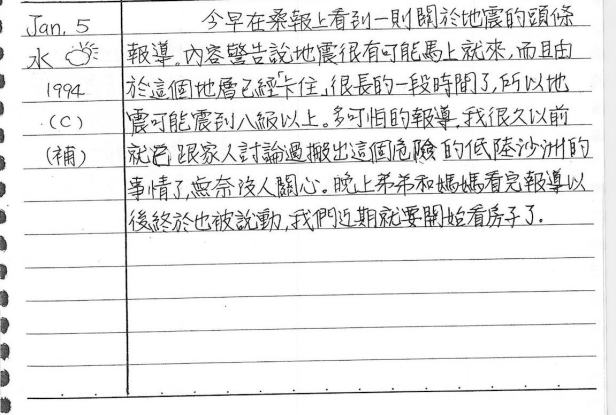 Jan. 5
水
1994
(C)
(補)
今早在桑報上看到一則關於地震的頭條
報導。內容警告說地震很有可能馬上就來,而且由
於這個地層已經「卡住」很長的一段時間了,所以地
震可能震到八級以上。多可怕的報導,我很久以前
就已跟家人討論過搬出這個危險的低陸沙洲的
事情了,無奈沒人關心。晚上弟弟和媽媽看完報導以
後終於也被說動,我們近期就要開始看房子了.